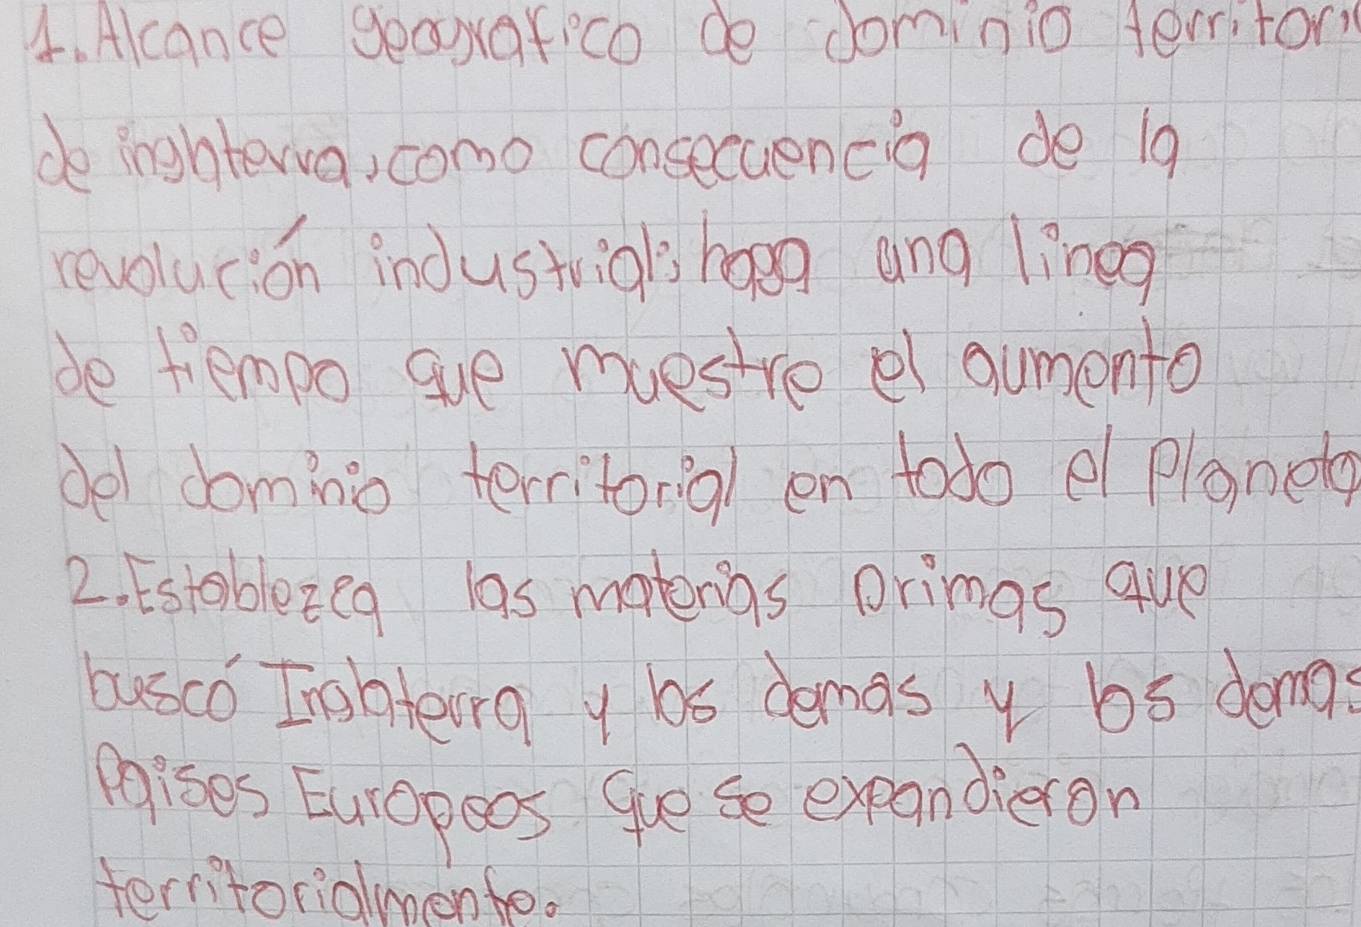 1. Alcance geografico de dominio territori
de inglaterra, como consecuencia de la
revolución industrial; haga una linea
de tiempo que muestre el aumento
del dominio territorial en todo el planeta
2. Establezca las materias primas que
buscó Inglaterra y los demas y los demas
Paises Europeos que se expandieron
territorialmente.